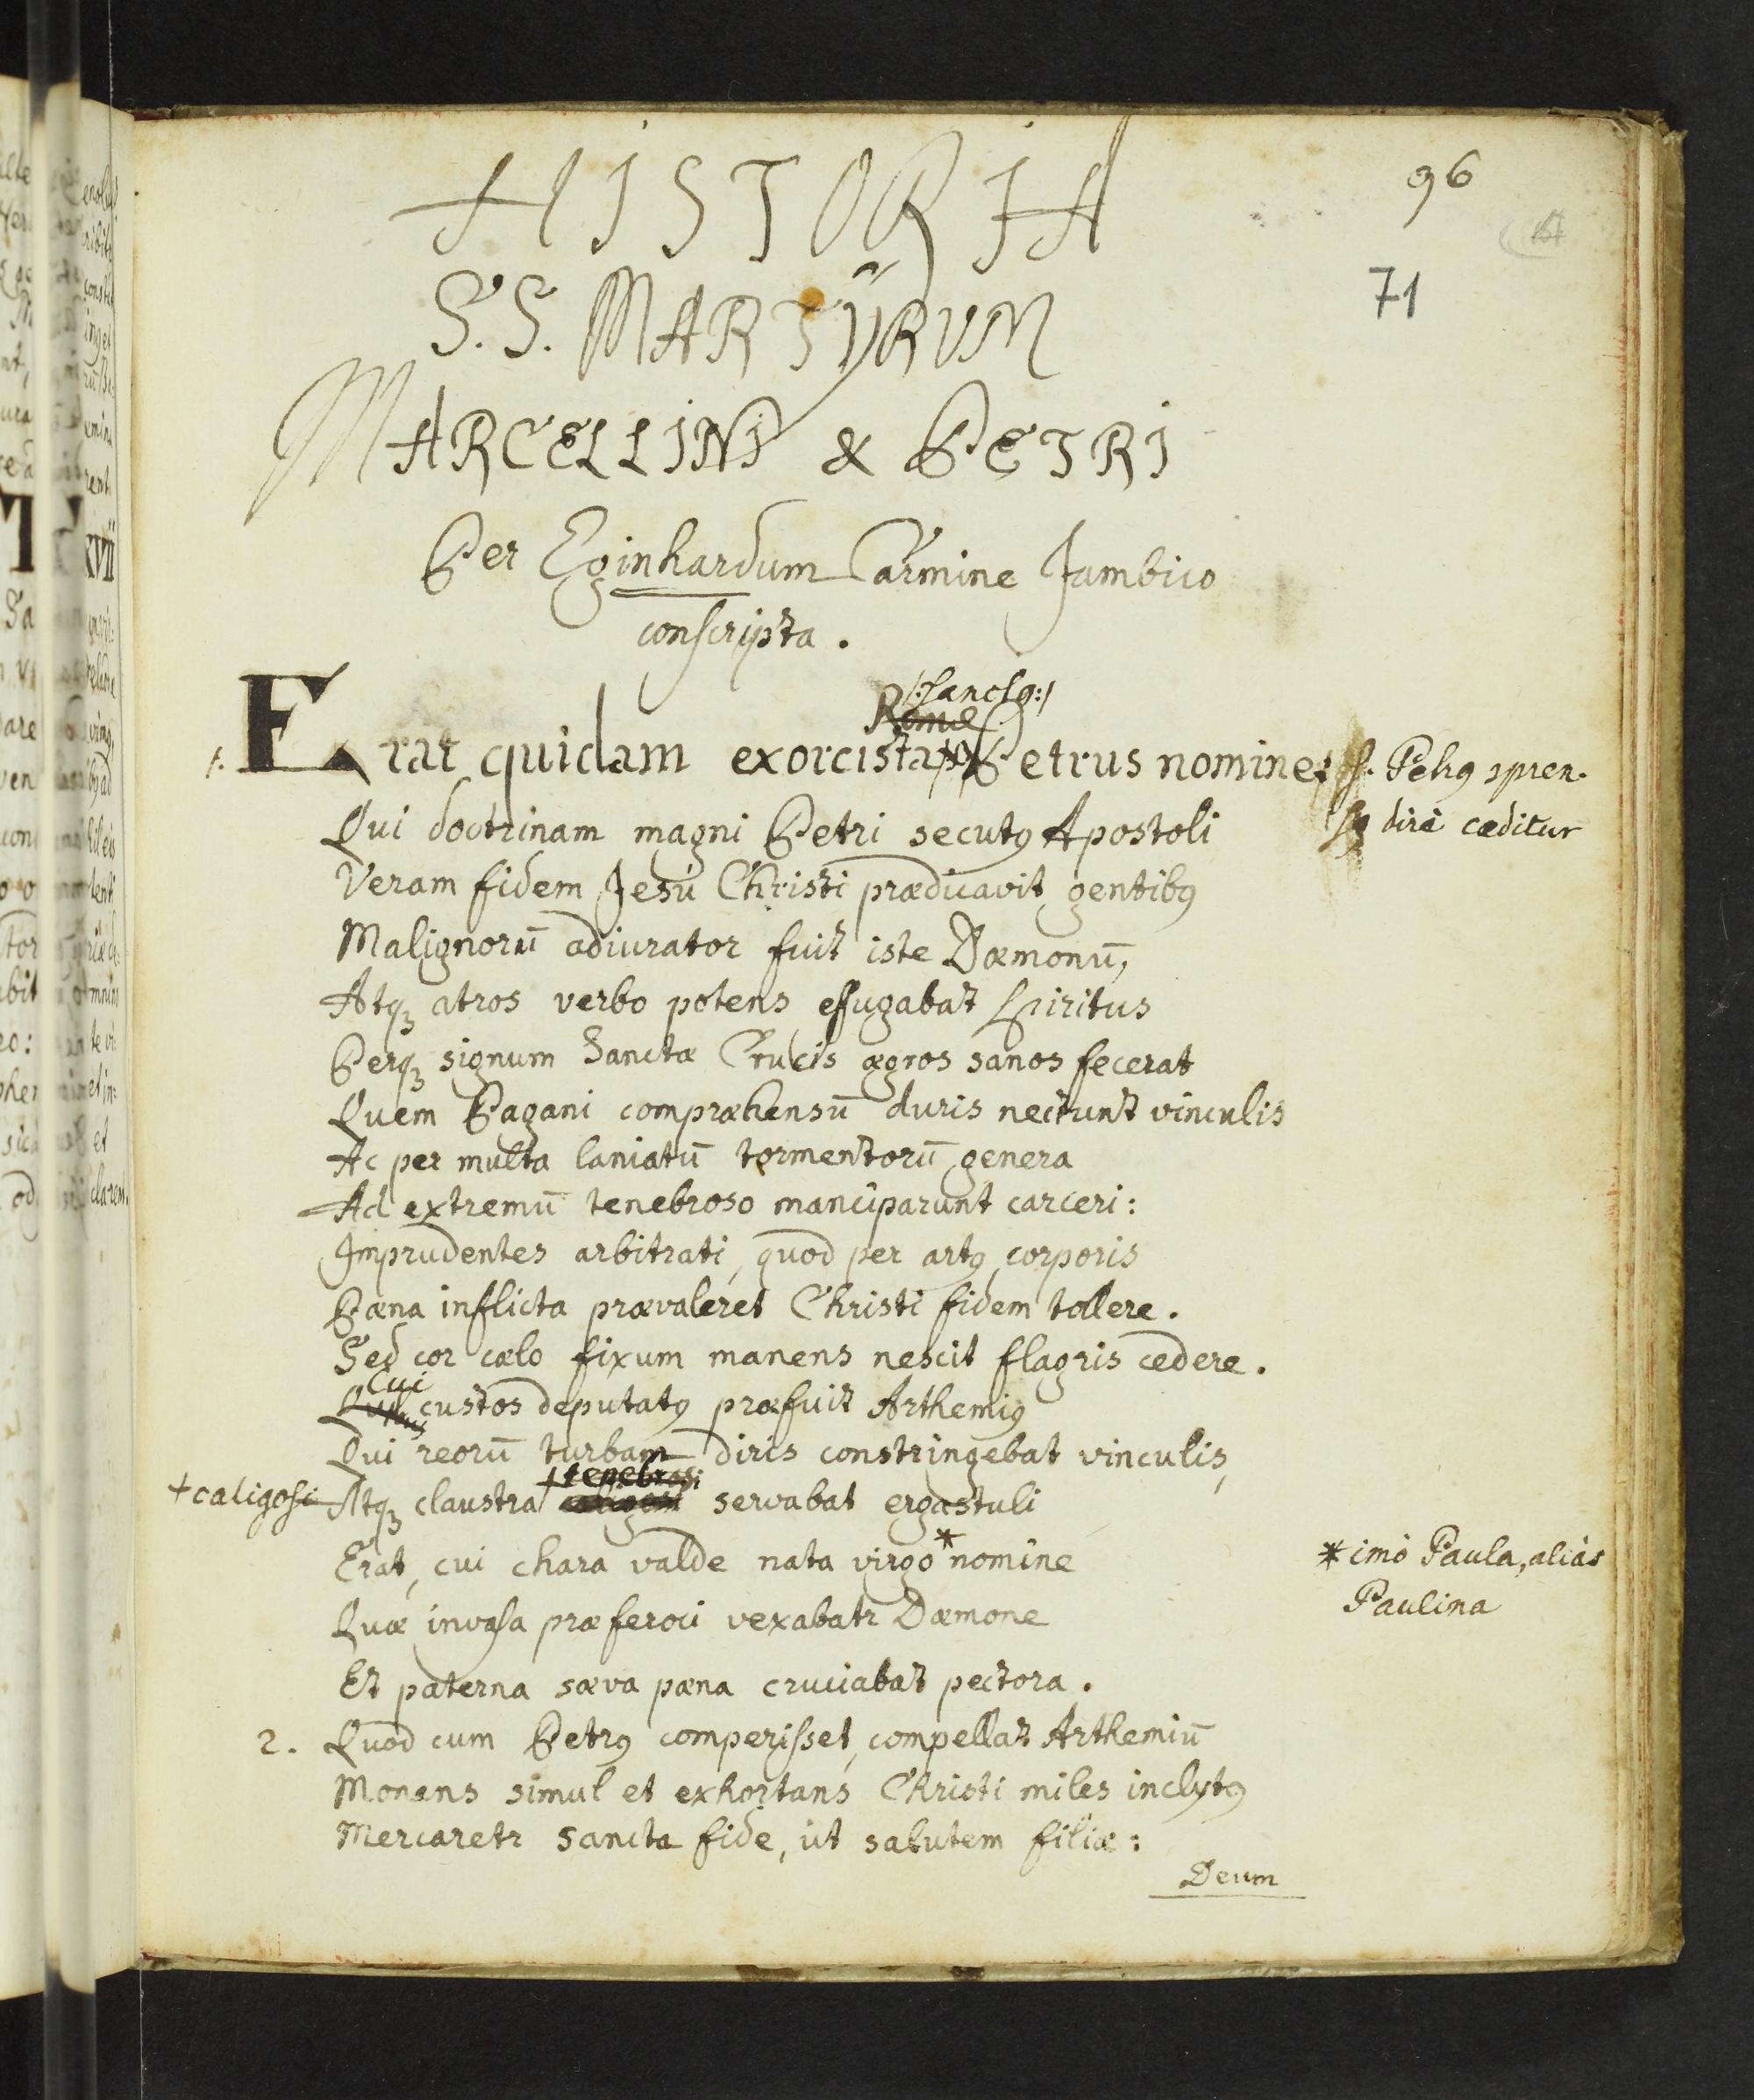 96
71
HISTORIA
S.S. MARTŸRVM
MARCELLINI & PETRI
Per Eginhardum Carmine Jambico
conscripta.
/:sanctq:/
Romæ
1. Erat quidam exorcista Petrus nomine;
S. Petrq spren-
dirè cæditur
Qui doctrinam magni Petri secutq Apostoli
Veram fidem Jesú Christi prædicavit gentibq
Malignorū adiurator fuit iste Dæmonū,
Atqꝫ atros verbo potens effugabat Spiritus
Perqꝫ signum Sanctæ Crucis ægros sanos fecerat
Quem Pagani compræhensū duris nectunt vinculis
Ac per multa laniatū tormentorū genera
Ad extremū tenebroso manciparunt carceri:
Imprudentes arbitrati, quod per artq corporis
Pæna inflicta prævaleret Christi fidem tollere.
Sed cor cælo fixum manens nescit flagris cedere.
Cui
custos deputatq præfuit Arthemiq
Qui reorū turbam diris constringebat vinculis,
+tenebrosi
+caligosi Atqꝫ claustra servabat ergastuli
Erat, cui chara valde nata virgo * nomine
* imò Paula, aliàs
Paulina
Quæ invasa præferoci vexabatr Dæmone
Et paterna sæva pæna cruciabat pectora.
2. Quod cum Petrq comperisset, compellat Arthemiū
Monens simul et exhortans Christi miles inclytq
Mercaretr sancta fide, út salutem filiæ:
Deum